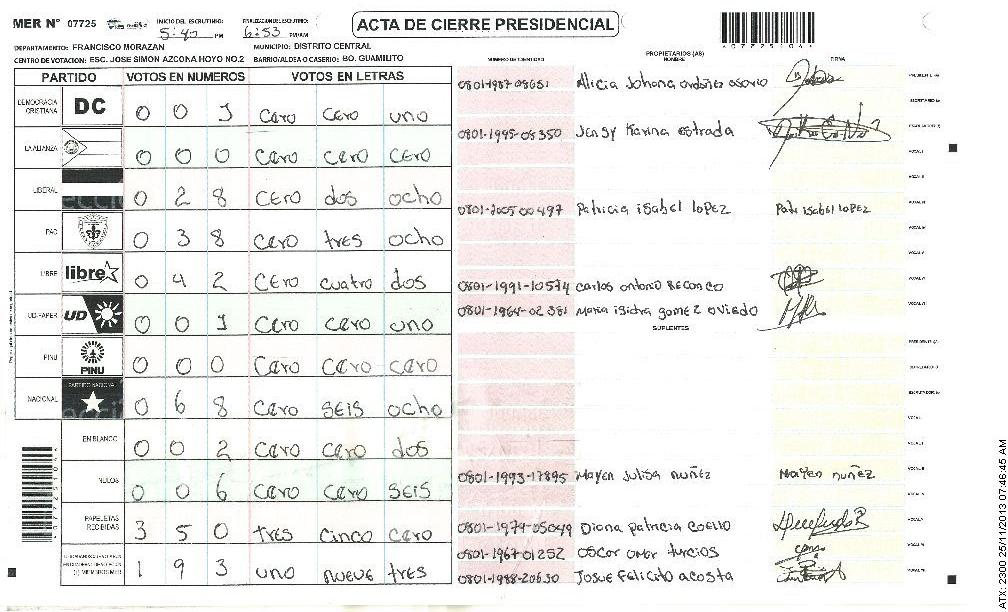 MER N° 07725
INICIO DEL ESCRUTINIO: 5:40 PM
FINALIZACION DEL ESCRUTINIO: 6:53 PM/AM
ACTA DE CIERRE PRESIDENCIAL
DEPARTAMENTO: FRANCISCO MORAZAN
MUNICIPIO: DISTRITO CENTRAL
CENTRO DE VOTACION: ESC. JOSE SIMON AZCONA HOYO NO.2 BARRIO/ALDEA O CASERIO: BO. GUAMILITO
PARTIDO VOTOS EN NUMEROS VOTOS EN LETRAS
DEMOCRACIA CRISTIANA DC 0 0 1 cero cero uno
LA ALIANZA 0 0 0 cero cero cero
LIBERAL 0 2 8 cero dos ocho
PAC 0 3 8 cero tres ocho
LIBRE libre 0 4 2 cero cuatro dos
UD-FAPER UD 0 0 1 cero cero uno
PINU PINU 0 0 0 cero cero cero
NACIONAL PARTIDO NACIONAL 0 6 8 cero seis ocho
EN BLANCO 0 0 2 cero cero dos
NULOS 0 0 6 cero cero seis
PAPELETAS RECIBIDAS 3 5 0 tres cinco cero
1 9 3 uno nueve tres
NUMERO DE IDENTIDAD
PROPIETARIOS (AS)
NOMBRE
FIRMA
0801-1987-08651 Alicia Johana ordoñez osorio
0801-1995-08350 Jensy Karina estrada
0801-2005 00497 Patricia isabel LOPEZ Patr isabel LOPEZ
0801-1991-10574 carlos antonio BECONCO
0801-1964-02381 Maria isidra gomez oviedo
SUPLENTES
0801-1993-17895 Mayen Julisa nuñez Mayen nuñez
0801-1974-05049 Diana patricia COELLO
0801-1967-01252 OSCar omar turcios
0801-1988-20630 JOSUE FELICITO acosta
07725104
ATX: 2300 25/11/2013 07:46:45 AM